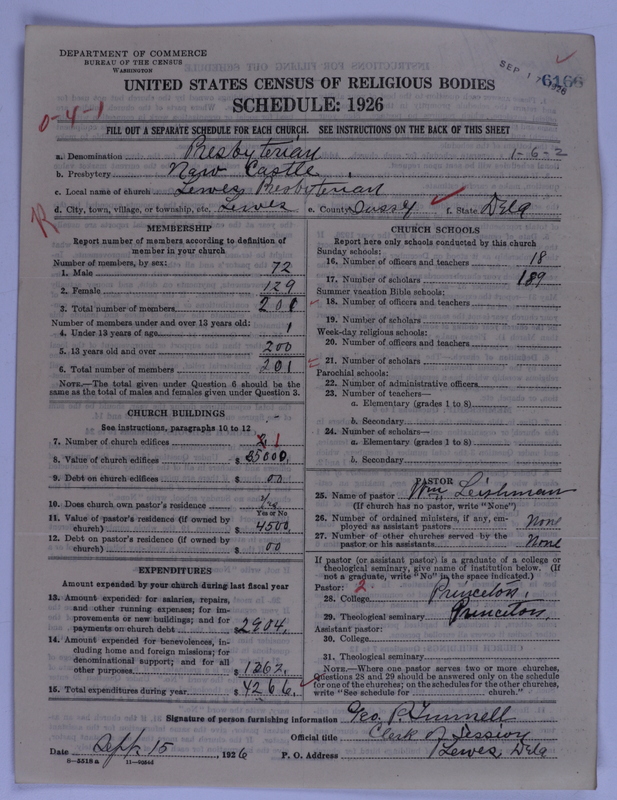 DEPARTMENT OF COMMERCE
BUREAU OF THE CENSUS
WASHINGTON
SEP 1 1926
6166
UNITED STATES CENSUS OF RELIGIOUS BODIES
SCHEDULE: 1926
0-4-1
FILL OUT A SEPARATE SCHEDULE FOR EACH CHURCH. SEE INSTRUCTIONS ON THE BACK OF THIS SHEET
a. Denomination Presbyterian 1-6-2
b. Presbytery New Castle
c. Local name of church Lewes Presbyterian
d. City, town, village, or township, etc. Lewes e. County Sussex f. State Dela
R
MEMBERSHIP
Report number of members according to definition of member in your church
Number of members, by sex:
1. Male 72
2. Female 129
3. Total number of members 201
Number of members under and over 13 years old:
4. Under 13 years of age 1
5. 13 years old and over 200
6. Total number of members 201
NOTE.—The total given under Question 6 should be the same as the total of males and females given under Question 3.
CHURCH BUILDINGS
See instructions, paragraphs 10 to 12
7. Number of church edifices 2 1
8. Value of church edifices $ 35000
9. Debt on church edifices $ 00
10. Does church own pastor's residence Yes
Yes or No
11. Value of pastor's residence (if owned by church) $ 4500
12. Debt on pastor's residence (if owned by church) $ 00
EXPENDITURES
Amount expended by your church during last fiscal year
13. Amount expended for salaries, repairs, and other running expenses; for improvements or new buildings; and for payments on church debt $ 2904.
14. Amount expended for benevolences, including home and foreign missions; for denominational support; and for all other purposes $ 1362.
15. Total expenditures during year $ 4266.
CHURCH SCHOOLS
Report here only schools conducted by this church
Sunday schools:
16. Number of officers and teachers 18
17. Number of scholars 189
Summer vacation Bible schools:
18. Number of officers and teachers
19. Number of scholars
Week-day religious schools:
20. Number of officers and teachers
21. Number of scholars
Parochial schools:
22. Number of administrative officers
23. Number of teachers—
a. Elementary (grades 1 to 8)
b. Secondary
24. Number of scholars—
a. Elementary (grades 1 to 8)
b. Secondary
PASTOR
25. Name of pastor Wm Leishman
(If church has no pastor, write "None")
26. Number of ordained ministers, if any, employed as assistant pastors None
27. Number of other churches served by the pastor or his assistants None
If pastor (or assistant pastor) is a graduate of a college or theological seminary, give name of institution below. (If not a graduate, write "No" in the space indicated.)
Pastor: 2
28. College Princeton.
29. Theological seminary Princeton.
Assistant pastor:
30. College
31. Theological seminary
NOTE.—Where one pastor serves two or more churches, Questions 28 and 29 should be answered only on the schedule for one of the churches; on the schedules for the other churches, write "See schedule for church."
Signature of person furnishing information Geo. P. Tunnell
Official title Clerk of Session
Date Sept 15, 1926 P. O. Address Lewes, Dela
8-5518 a